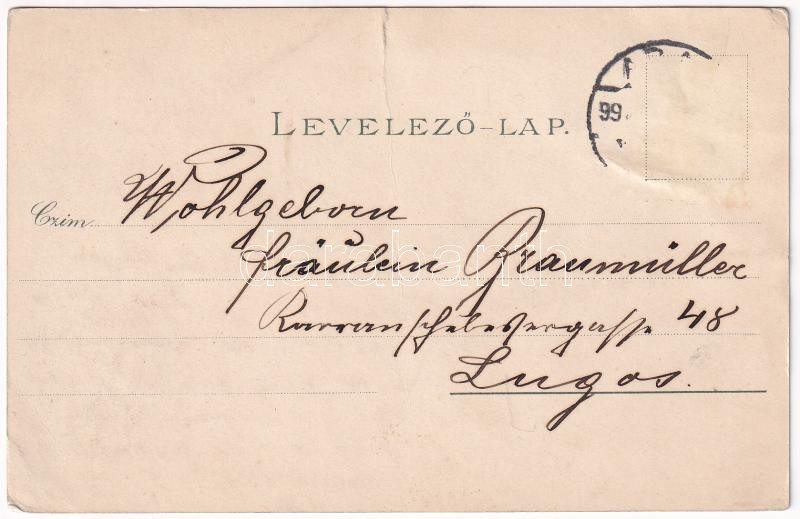 LEVELEZŐ-LAP.
99
Czim
Wohlgeborn
Fräulein Braumüller
48
Lugos.
darabanth